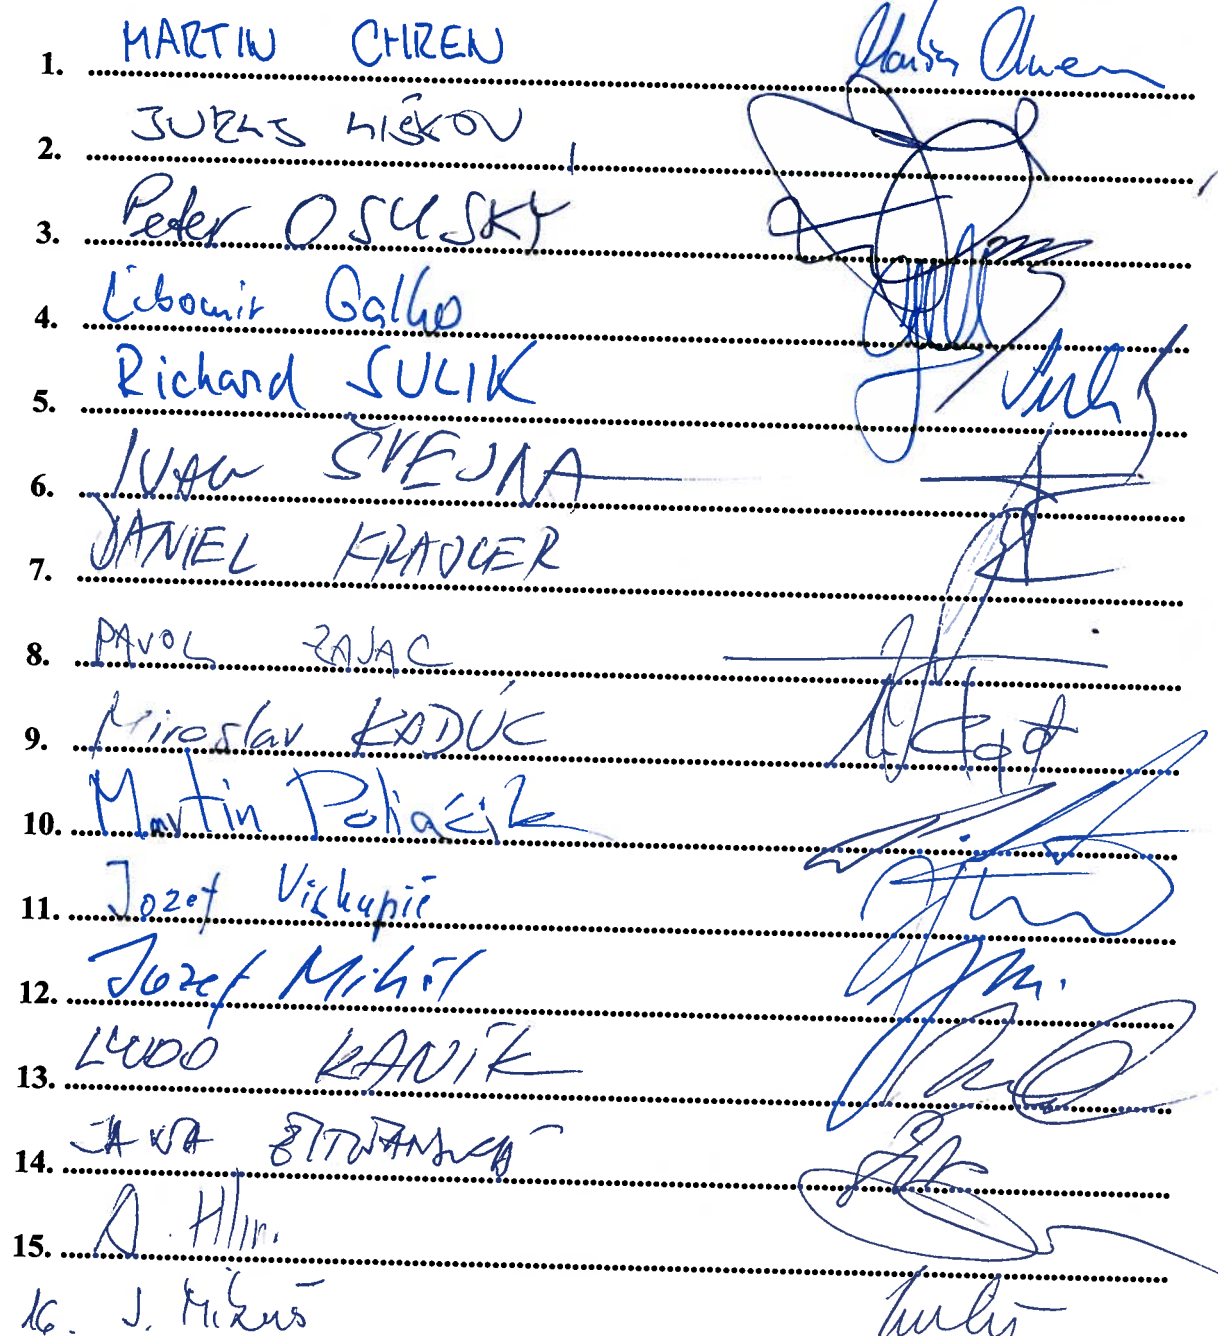 1. MARTIN CHREN
2. JURAJ MIŠKOV
3. Peter OSUSKÝ
4. Ľubomír Galko
5. Richard SULIK
6. IVAN ŠVEJNA
7. DANIEL KRAJCER
8. PAVOL ZAJAC
9. Miroslav KADÚC
10. Martin Poliačik
11. Jozef Viskupič
12. Jozef Mihál
13. ĽUDO KANÍK
14. JANA ŽITŇANSKÁ
15. A. Hlin.
16. J. Mikuš